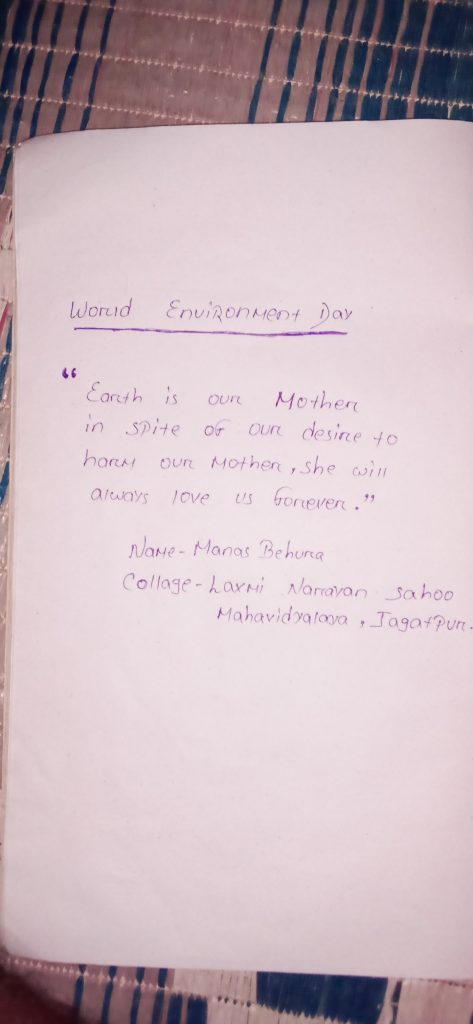 World Environment Day
“ Earth is our Mother
in spite of our desire to
harm our Mother, she will
always love us forever.”
Name- Manas Behura
Collage- Laxmi Narayan Sahoo
Mahavidyalaya, Jagatpur.